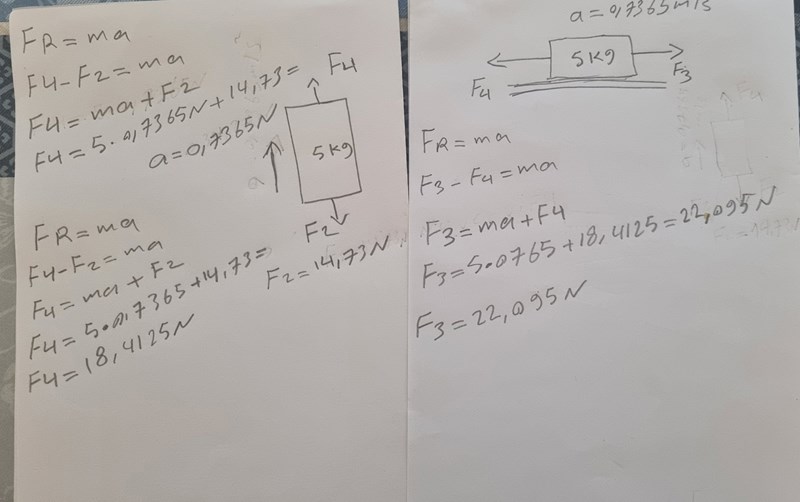 FR = ma
F4 - F2 = ma
F4 = ma + F2
F4 = 5 · 0,7365N + 14,73 =
a = 0,7365N
F4
5kg
a
F2
F2 = 14,73N
FR = ma
F4 - F2 = ma
F4 = ma + F2
F4 = 5 · 0,7365 + 14,73 =
F4 = 18,4125N
a = 0,7365m/s
5kg
F4
F3
FR = ma
F3 - F4 = ma
F3 = ma + F4
F3 = 5·0765 + 18,4125 = 22,095N
F3 = 22,095N